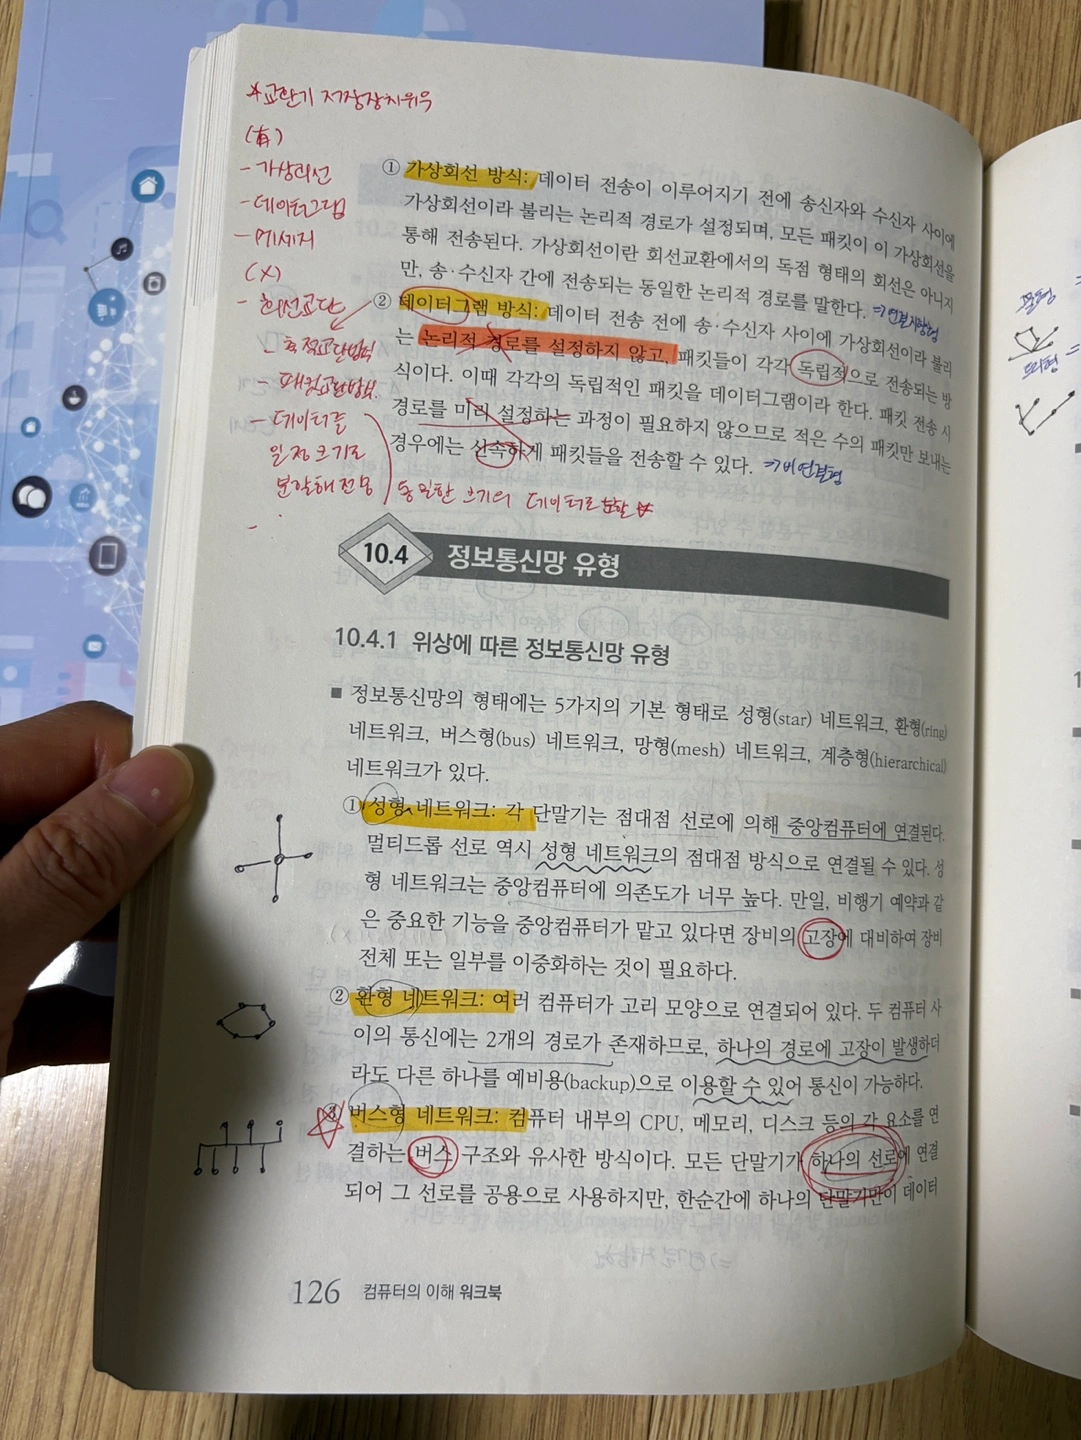 *교환기 저장장치유무
(有)
- 가상회선
- 데이터그램
- 메세지
(X)
- 회선교환
- 패킷교환방식
- 데이터를
일정크기로
분할해 전송
동일한 크기의 데이터로 분할
① 가상회선 방식: 데이터 전송이 이루어지기 전에 송신자와 수신자 사이에
가상회선이라 불리는 논리적 경로가 설정되며, 모든 패킷이 이 가상회선을
통해 전송된다. 가상회선이란 회선교환에서의 독점 형태의 회선은 아니지
만, 송·수신자 간에 전송되는 동일한 논리적 경로를 말한다. ⇒연결지향형
② 데이터그램 방식: 데이터 전송 전에 송·수신자 사이에 가상회선이라 불리
는 논리적 경로를 설정하지 않고, 패킷들이 각각 독립적으로 전송되는 방
식이다. 이때 각각의 독립적인 패킷을 데이터그램이라 한다. 패킷 전송 시
경로를 미리 설정하는 과정이 필요하지 않으므로 적은 수의 패킷만 보내는
경우에는 신속하게 패킷들을 전송할 수 있다. ⇒비연결형
10.4 정보통신망 유형
10.4.1 위상에 따른 정보통신망 유형
■ 정보통신망의 형태에는 5가지의 기본 형태로 성형(star) 네트워크, 환형(ring)
네트워크, 버스형(bus) 네트워크, 망형(mesh) 네트워크, 계층형(hierarchical)
네트워크가 있다.
① 성형 네트워크: 각 단말기는 점대점 선로에 의해 중앙컴퓨터에 연결된다.
멀티드롭 선로 역시 성형 네트워크의 점대점 방식으로 연결될 수 있다. 성
형 네트워크는 중앙컴퓨터에 의존도가 너무 높다. 만일, 비행기 예약과 같
은 중요한 기능을 중앙컴퓨터가 맡고 있다면 장비의 고장에 대비하여 장비
전체 또는 일부를 이중화하는 것이 필요하다.
② 환형 네트워크: 여러 컴퓨터가 고리 모양으로 연결되어 있다. 두 컴퓨터 사
이의 통신에는 2개의 경로가 존재하므로, 하나의 경로에 고장이 발생하더
라도 다른 하나를 예비용(backup)으로 이용할 수 있어 통신이 가능하다.
③ 버스형 네트워크: 컴퓨터 내부의 CPU, 메모리, 디스크 등의 각 요소를 연
결하는 버스 구조와 유사한 방식이다. 모든 단말기가 하나의 선로에 연결
되어 그 선로를 공용으로 사용하지만, 한순간에 하나의 단말기만이 데이터
126 컴퓨터의 이해 워크북
트리형